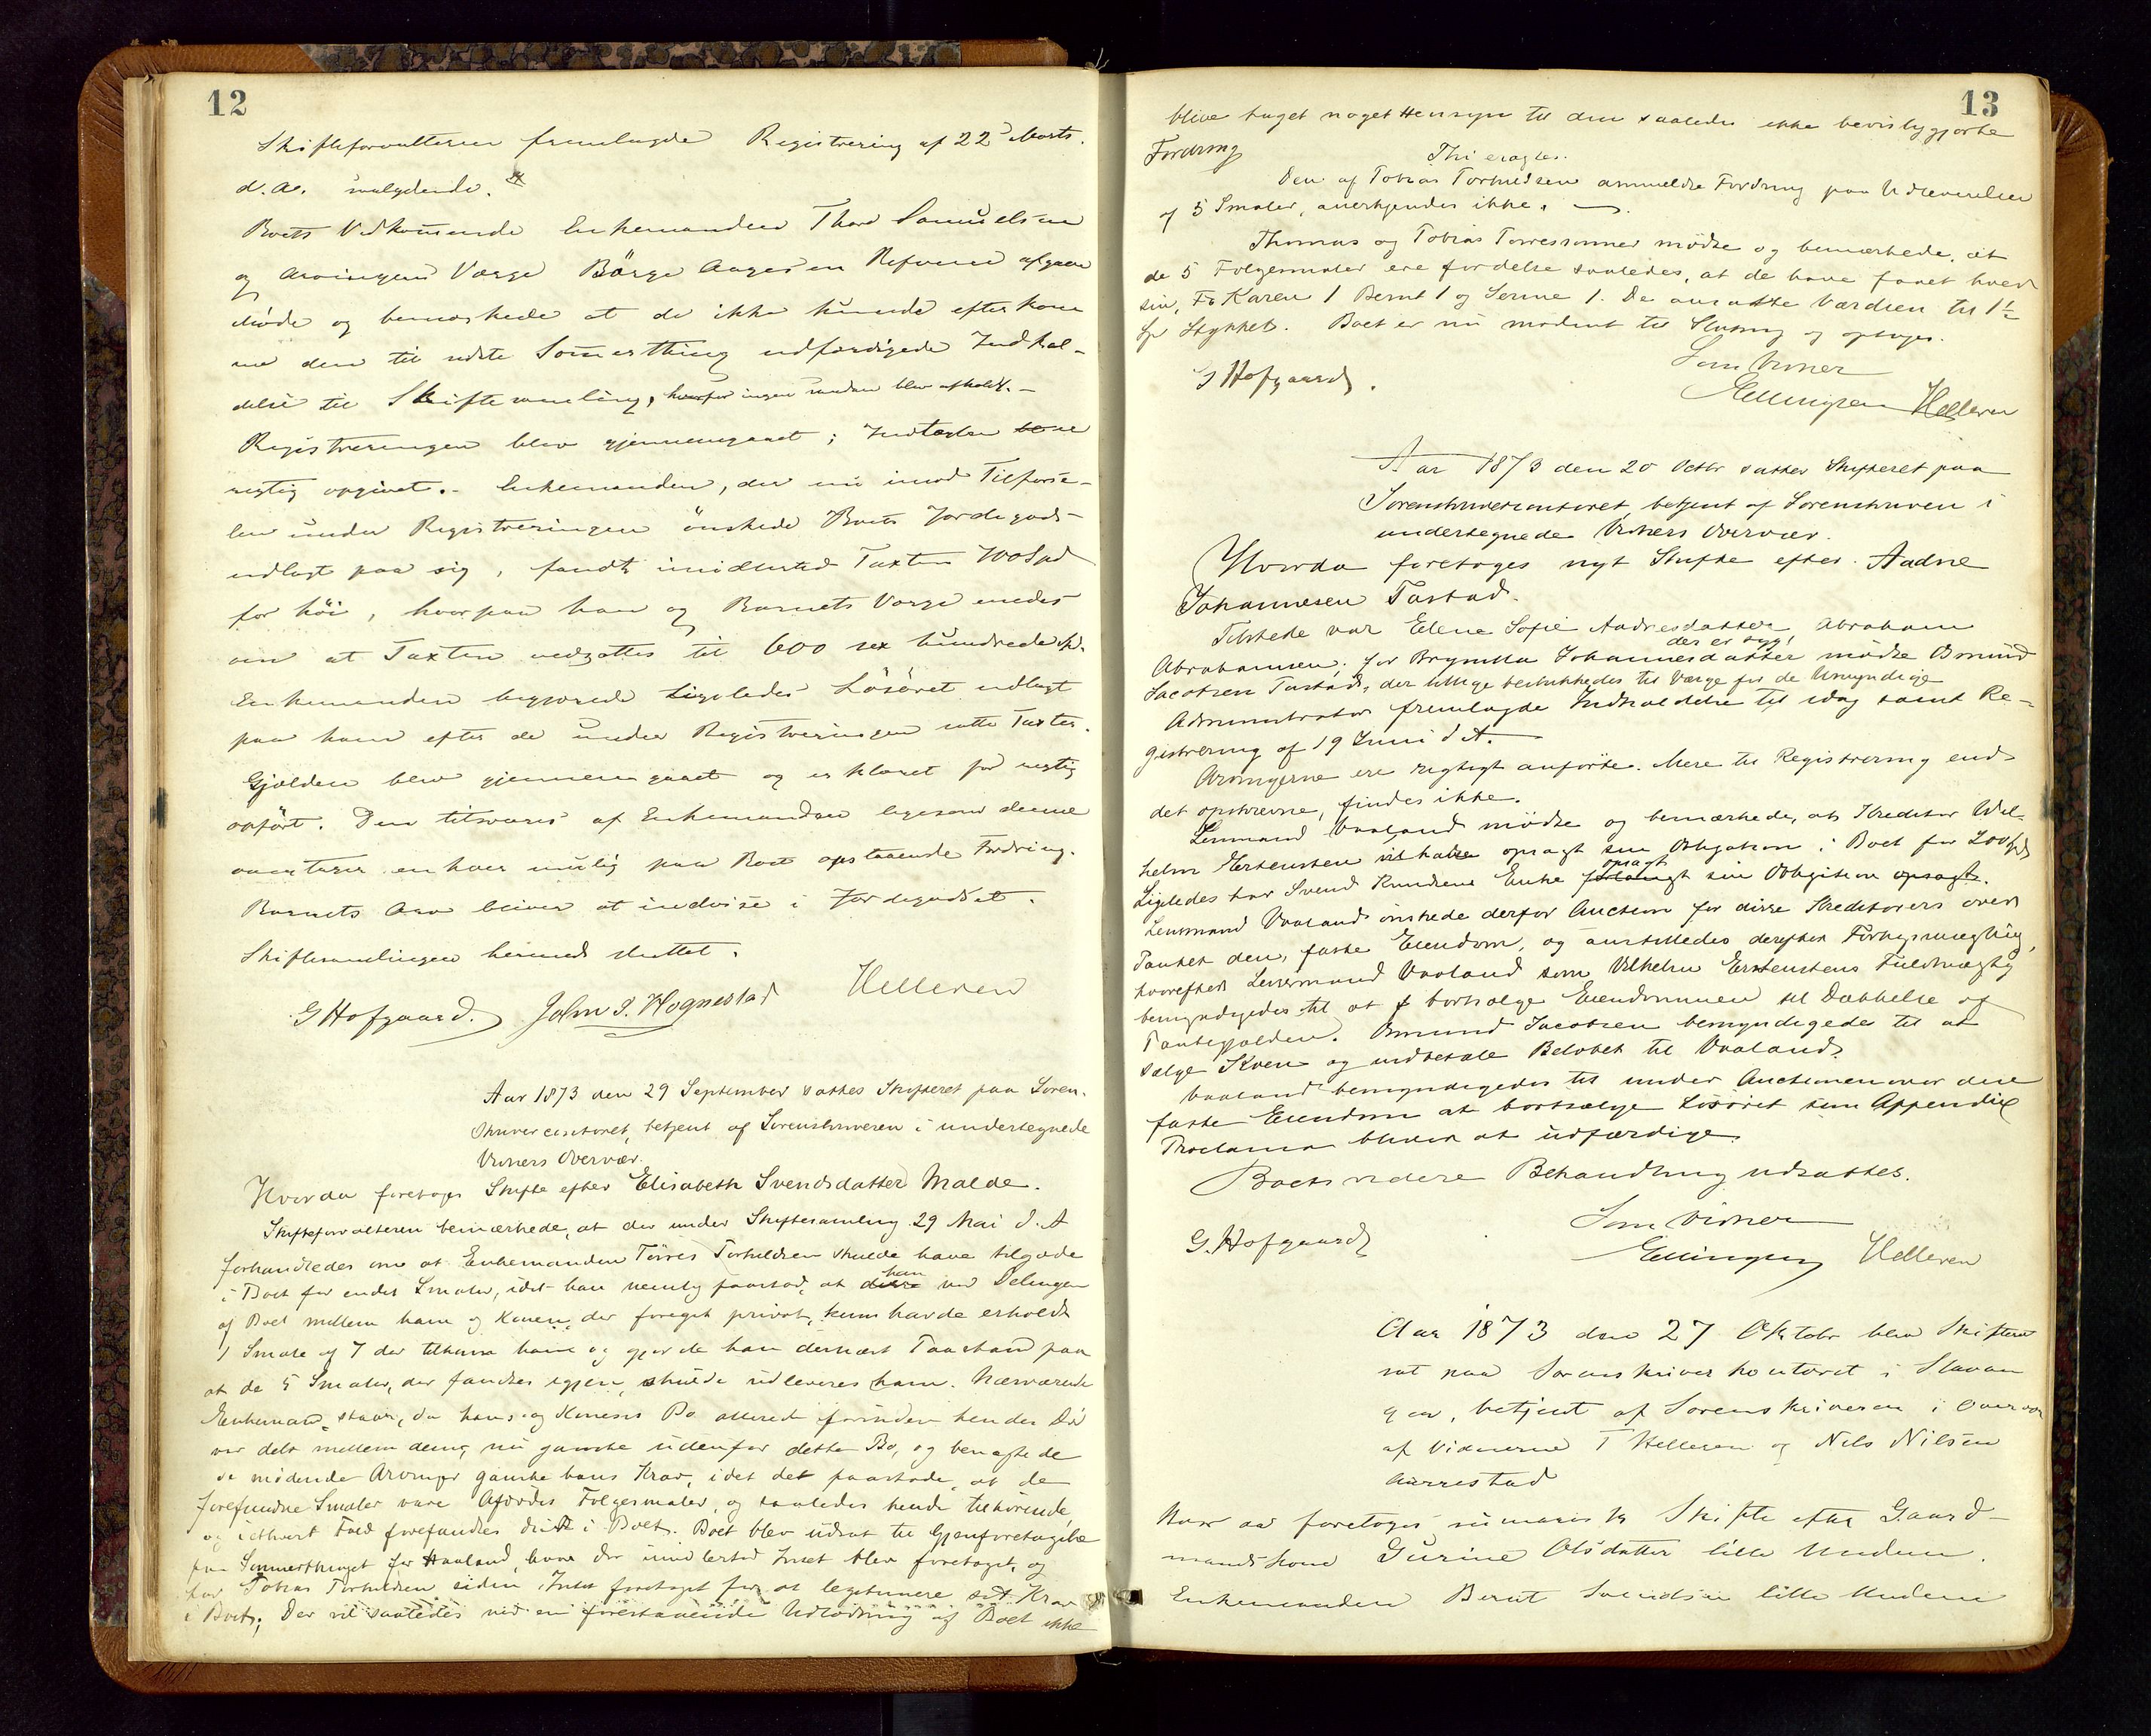 12
Skifteforvalteren fremlagde Registrering af 22 Marts
d. A. saalydende.
Boets Vedkommende Enkemanden Thore Samuelsen
og Arvingens Værge Börge Aagesen Refvem afgave
Möde og bemærkede at de ikke kunde efterkom
me den til sidste Sommerthing udfærdigede Indkal-
delse til Skiftesamling, hvorfor ingen saadan blev afholdt. -
Registreringen blev gjennemgaaet; Indtægten
rigtig opgivet. - Enkemanden, der nu imod Tilförse-
len under Registreringen önskede Boets Jordegods
udlagt paa sig, fandt imidlertid Taxten 700 Spd
for höi, hvorpaa han og Barnets Værge enedes
om at Taxten nedsattes til 600 sex hundrede Spd.
Enkemanden begjærede ligeledes Lösöret udlagt
paa ham efter de under Registreringen satte Taxter.
Gjælden blev gjennemgaaet og erklæret for rigtig
opfört. Den tilsvares af Enkemanden ligesom denne
overtager enhver mulig paa Boet opstaaende Fordring.
Barnets Arv bliver at indvise i Jordegodset.
Skiftesamlingen hermed sluttet.
G Hofgaard. John P. Hognestad Helleren
Aar 1873 den 29 September sattes Skifteret paa Soren-
skrivercontoret, betjent af Sorenskriveren i undertegnede
Vidners Overvær.
Hvorda foretoges Skifte efter Elisabeth Svendsdatter Malde.
Skifteforvalteren bemærkede, at der under Skiftesamling 29 Mai d. A
forhandledes om at Enkemanden Törres Torkildsen skulde have tilgode
i Boet for endel Smaler, idet han nemlig paastod, at disse han ved Delingen
af Boet mellem ham og Konen, der foregik privat, kun havde erholdt
1 Smale af 7 der tilkom ham og gjorde han dernæst Paastand paa
at de 5 Smaler, der fandtes igjen, skulde udleveres ham. Nærværende
Enkemand staar, da hans og Konens Bo allerede forinden hendes Död
var delt mellem dem, nu ganske udenfor dette Bo, og benægtede
de mödende Arvinger ganske hans Krav, idet det paastode, at de
forefundne Smaler vare Afdödes Fölgesmaler, og saaledes hende tilhörende,
og iethvert Fald forefandtes disse i Boet. Boet blev udsat til Gjenforetagelse
paa Sommerthinget for Haaland, hvor der imidlertid Intet blev foretaget, og
har Tobias Torkildsen siden Intet foretaget for at legitimere sit Krav
i Boet; Der vil saaledes ved en forestaaende Udlodning af Boet ikke
13
blive taget noget Hensyn til den saaledes ikke bevisliggjorte
Fordring
Thi eragtes:
Den af Tobias Torkildsen anmeldte Fordring paa Udleverelsen
af 5 Smaler, anerkjendes ikke.
Thomas og Tobias Torressönner mödte og bemærkede, at
de 5 Fölgesmaler ere fordelte saaledes, at de have faaet hver
sin, Karen 1 Bernt 1 og Serine 1. De ansatte Værdien til 1½
Spd Stykket. Boet er nu modent til Slutning og optages.
G Hofgaard. Som Vidner
Ellingsen Helleren
Aar 1873 den 20 Octbr sattes Skifteret paa
Sorenskrivercontoret, betjent af Sorenskriven i
undertegnede Vidners Overvær.
Hvorda foretoges nyt Skifte efter Aadne
Johannesen Tastad.
Tilstede var Elene Sofie Aadnesdatter, Abraham
Abrahamsen; for Brynilla Johannesdatter der er syg, mödte Omund
Jacobsen Tastad, der tillige beskikkedes til Værge for de Umyndige
Administrator fremlagde Indkaldelse til idag samt Re-
gistrering af 19 Juni d. A.
Arvingerne ere rigtigt anförte. Mere til Registrering end
det opskrevne, findes ikke.
Lensmand Vaaland mödte og bemærkede, at Kreditor Wil-
helm Erstensten har opsagt sin Obligation i Boet for 200 Spd
Ligeledes har Svend Knudsens Enke forlangt opsagt sin Obligation opsagt.
Lensmand Vaaland önskede derfor Auction for disse Kreditorers over
Pantet den faste Eiendom, og anstilledes derefter Forligsmægling,
hvorefter Lensmand Vaaland som Vilhelm Erstenstens Fuldmægtig
bemyndigedes til at bortsælge Eiendommen til Dækkelse af
Pantegjælden. Omund Jacobsen bemyndigedes til at
sælge Koen og indbetale Belöbet til Vaaland.
Vaaland bemyndigedes til under Auctionen over den
faste Eiendom at bortsælge Lösöret som Appendix
Proclama bliver at udfærdige.
Boets videre Behandling udsattes.
G. Hofgaard Som Vidner
Ellingsen Helleren
Aar 1873 den 27 Oktobr blev Skifteret
sat paa Sorenskriverkontoret i Stavan
ger, betjent af Sorenskriveren i Overvær
af Vidnerne T Helleren og Nils Nilsen
Aarrestad
Hvor da foretoges summarisk Skifte efter Gaard-
mandskone Gurine Olsdatter lille Undem.
Enkemanden Bernt Svendsen lille Undem